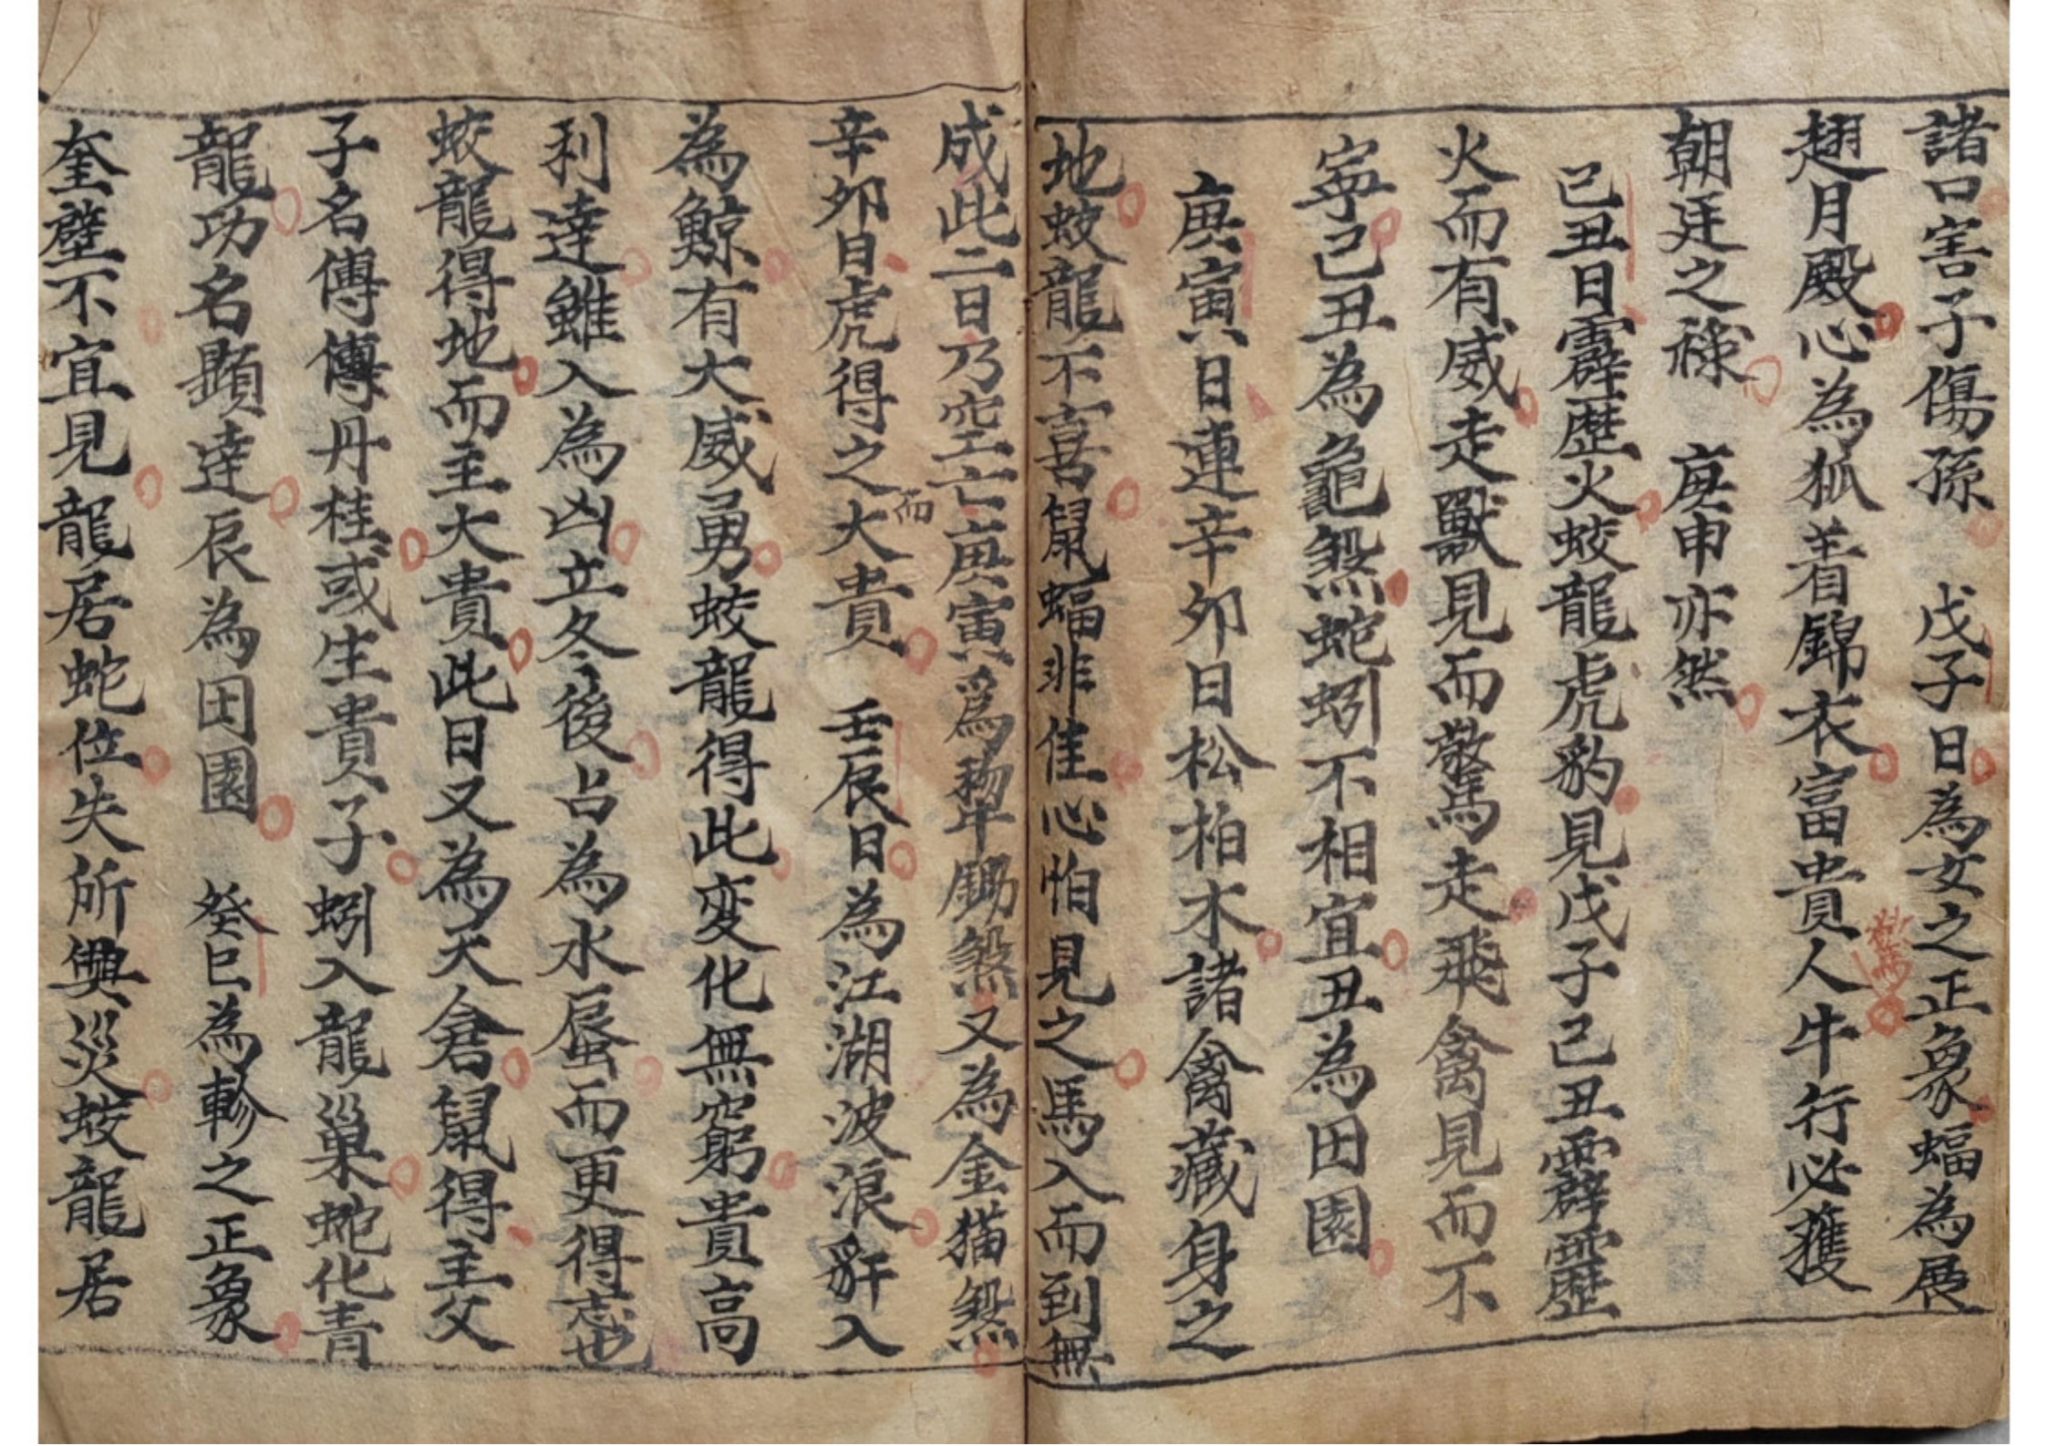 諸口害子傷孫　戊子日為女之正象蝠為展
翅月殿心為狐着錦衣富貴人牛行必獲
朝廷之禄　庚申亦然
己丑日霹歷火蛟龍虎豹見戊子己丑霹靂
火而有威走獸見而驚走飛禽見而不
寧己丑為龜煞蛇蚓不相宜丑為田園
庚寅日連辛卯日松柏木諸禽藏身之
地蛟龍不喜鼠蝠非佳心怕見之馬入而到無
成此二日乃空亡庚寅為年鋤煞又為金猫煞
辛卯日虎得之而大貴　壬辰日為江湖波浪豻入
為鯨有大威勇蛟龍得此変化無窮貴高
利達雖入為凶立冬后後占為水蜃而更得志也
蛟龍得地而主大貴此日又為天倉鼠得主父
子名傳傳丹桂或生貴子蚓入龍巢蛇化青
龍功名顕達辰為田園　癸巳為軫之正象
奎壁不宜見龍居蛇位失所興災蛟龍居